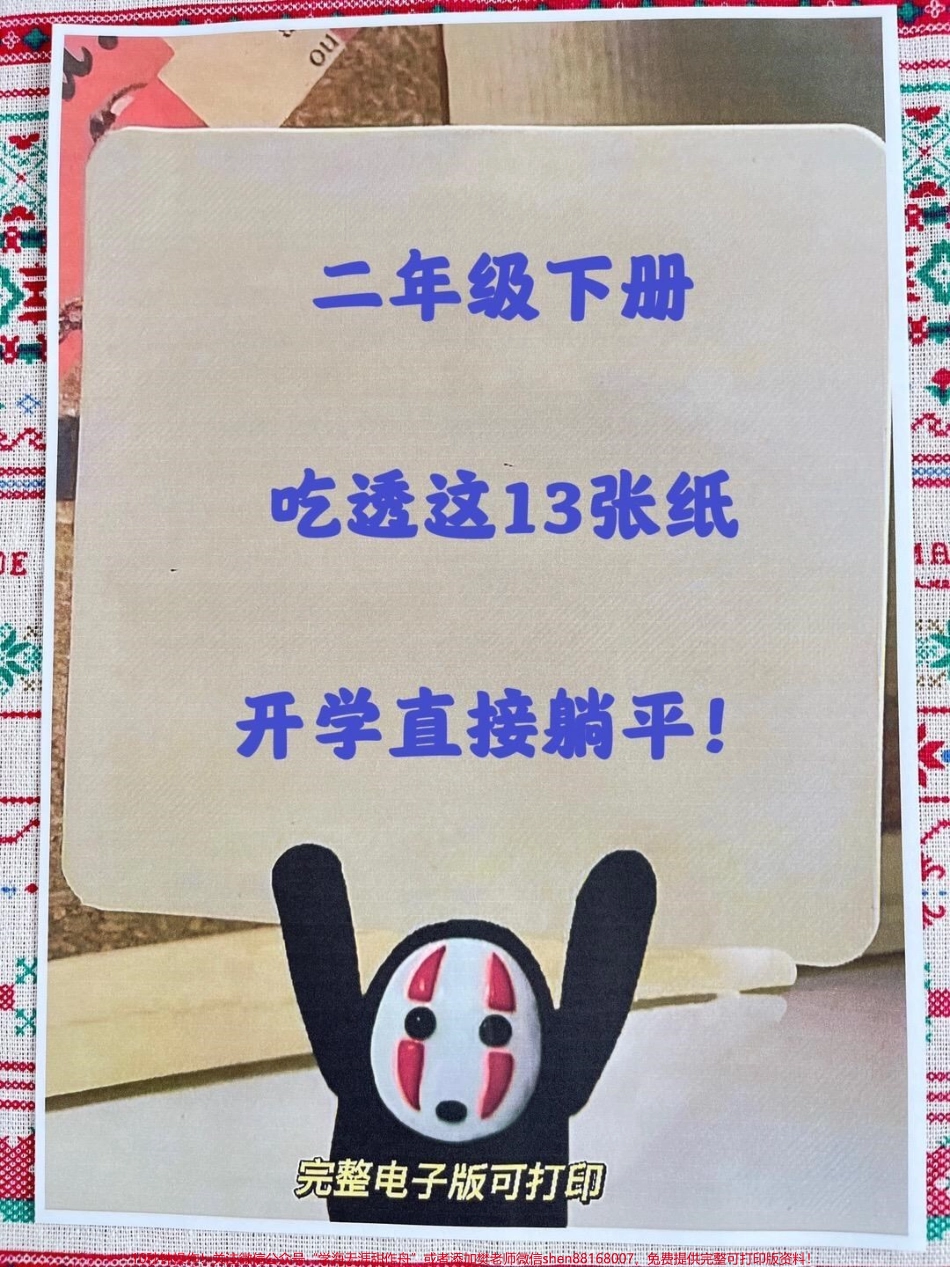 ou
二年级下册
吃透这13张纸
开学直接躺平!
完整电子版可打印
或者添加樊老师微信shen88168007，免费提供完整可打印版资料!